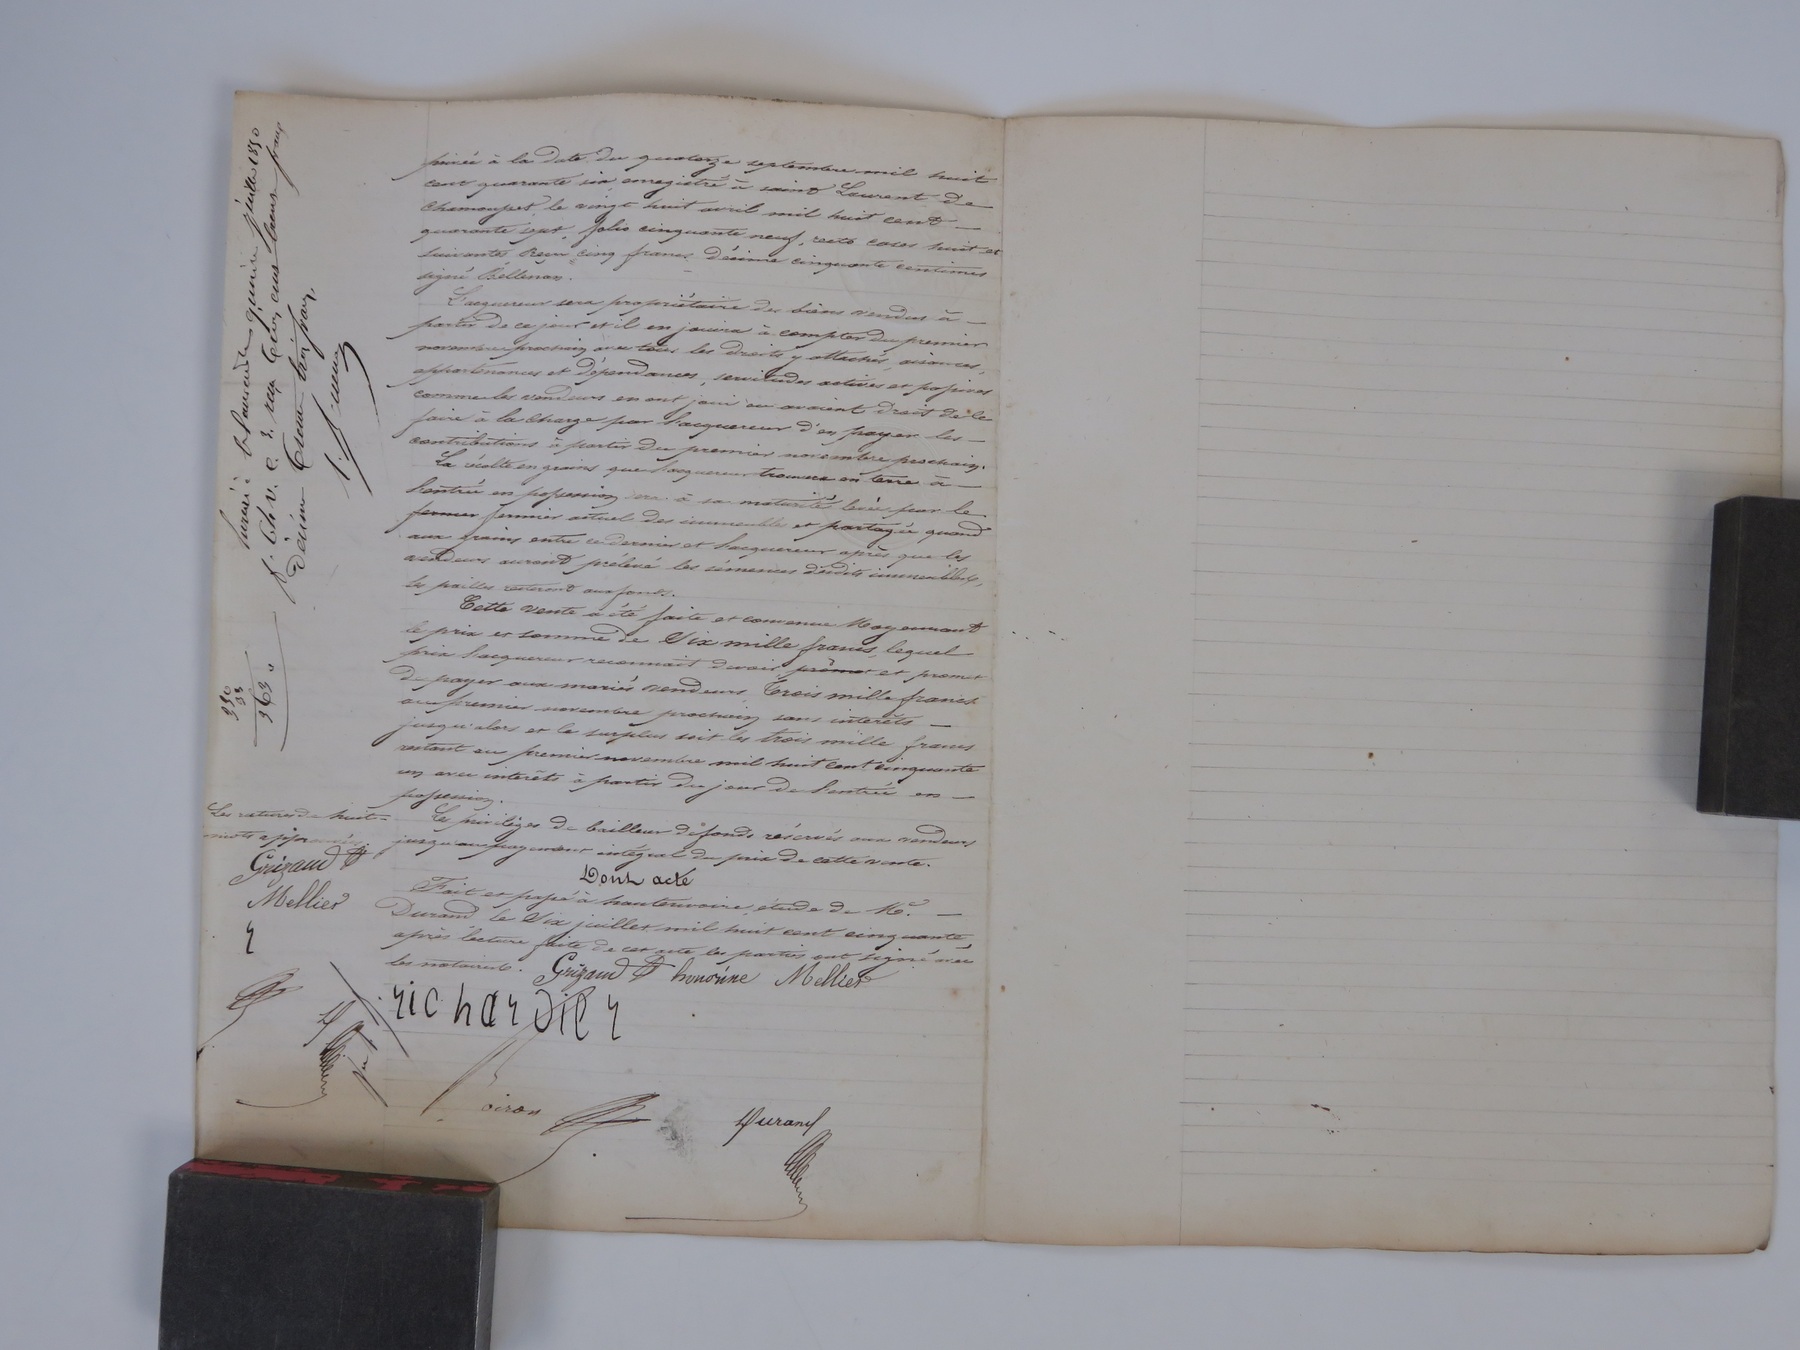 privée à la date du quatorze septembre mil huit
cent quarante six enregistré à saint Laurent de
Chamousset le vingt huit avril mil huit cent
quarante sept, folio cinquante neuf, recto cases huit et
suivantes Reçu cinq francs décime cinquante centimes
signé Bellenan.
L'acquereur sera propriétaire des biens vendus à
partir de ce jour et il en jouira à compter du premier
novembre prochain avec tous les droits y attachés, aisances,
appartenances et dépendances, servitudes actives et passives
comme les vendeurs en ont joui ou avaient droit de le
faire à la charge par l'acquereur d'en payer les
contributions à partir du premier novembre prochain.
La récolte en grains que l'acquereur trouvera en terre à
l'entrée en possession sera à sa maturité levée par le
fermier fermier actuel des immeubles et partagée quand
aux grains entre ce dernier et l'acquereur après que les
vendeurs auront prélevé les sémences desdits immeubles,
les pailles resteront aux fonds.
Cette vente a été faite et convenue Moyennant
le prix et somme de Six mille francs, lequel
prix l'acquereur reconnait devoir et promet
de payer aux mariés vendeurs, Trois mille francs
au premier novembre prochain sans intérêts
jusqu'alors et le surplus soit les trois mille francs
restant au premier novembre mil huit cent cinquante
un avec intérêts à partir du jour de l'entrée en
possession.
Les priviléges de bailleur de fonds réservés aux vendeurs
jusqu'au payement intégral du prix de cette vente.
Dont acte
Fait et passé à hauterivoire, étude de Me
Durand le Six juillet mil huit cent cinquante
après lecture faite de cet acte les parties ont signé avec
les notaires. Grizaud honorine Mellier
richardier
Durand
Les ratures de huit
mots approuvées
Grizaud
Mellier
r
quinze juillet 1850
330
33
363 "